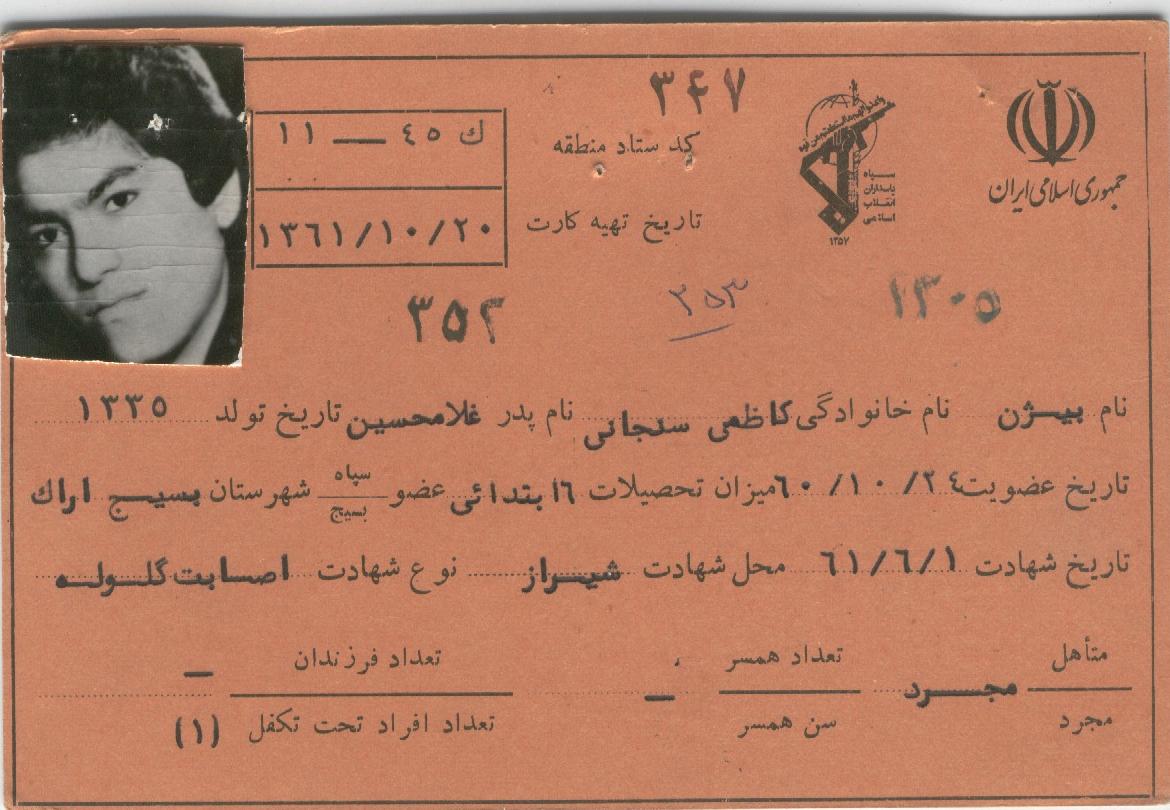 جمهوری اسلامی ایران
سپاه
پاسداران
انقلاب
اسلامی
۱۳۵۷
۳۴۷
کد ستاد منطقه ك ٤٥ — ١١
تاریخ تهیه کارت ١٣٦١/١٠/٢٠
١٣٠٥
۳۵۳
۳۵۲
نام بیژن نام خانوادگی کاظمی سنجانی نام پدر غلامحسین تاریخ تولد ١٣٣٥
تاریخ عضویت ٦٠/١٠/٢٤ میزان تحصیلات ١٦ بتدائی عضو سپاه بسیج شهرستان بسیج اراك
تاریخ شهادت ٦١/٦/١ محل شهادت شیراز نوع شهادت اصابت گلوله
متأهل تعداد همسر تعداد فرزندان —
مجرد مجرد سن همسر — تعداد افراد تحت تکفل (١)